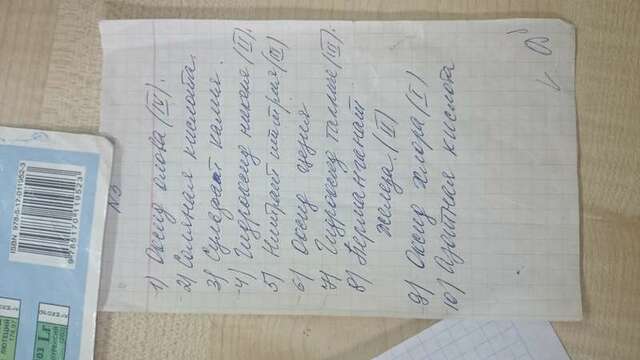 №3
1) Оксид олова (IV).
2) Соляная кислота.
3) Сульфат калия.
4) Гидроксид никеля (II)
5) Нитрат иттрия (III)
6) Оксид цезия
7) Гидроксид таллия (III)
8) Перманганат
железа. (II)
9) Оксид хлора (I)
10) Азотная кислота